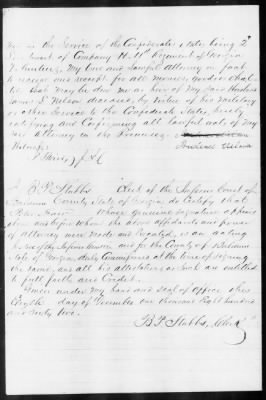 in the Service of the Confederate States being
of Company H. 11th Regiment of Georgia
Volunteers, My true and lawful attorney in fact
to receipt and receipt for all monies, goods or chat
tels that may be due me as heir of my said Husband
James S Nelson deceased, by virtue of his Military
or other Service to the Confederate States, hereby
ratifying and Confirming all lawful acts of my
said Attorney in the Premises.
Witness
J.P.

I B. P. Stubbs Clerk of the Superior Court of
Baldwin County State of Georgia do Certify that
Peter Fair whose genuine signature appears
above and before whom the above affidavits and power
of attorney were made and Executed, is an acting
Justice of the Inferior Court in and for the County of Baldwin
State of Georgia, duly Commissioned at the time of signing
the same, and all his attestations as such are entitled
to full faith and Credit.
Given under my hand and seal of office this
day of December one thousand Eight hundred
and Sixty two.
B. P. Stubbs, Clerk